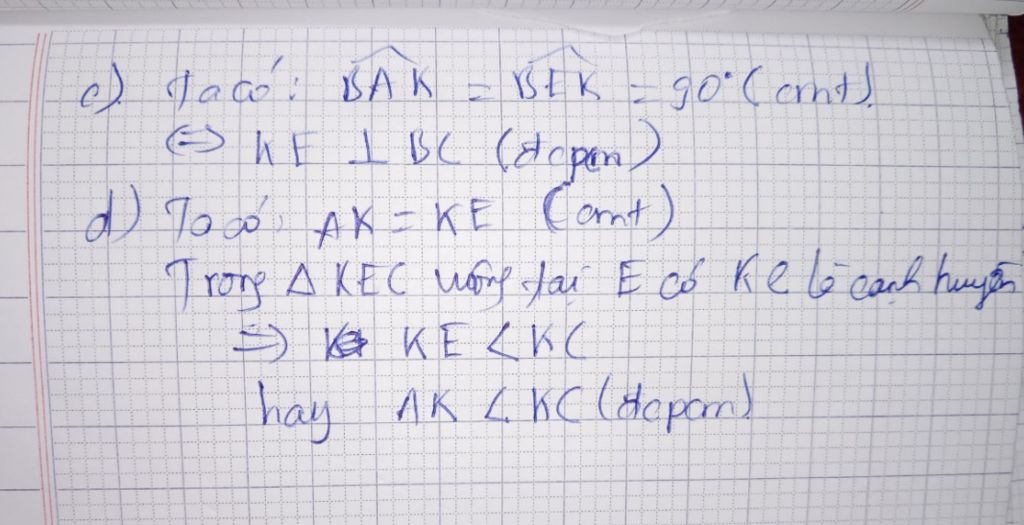 c). Ta có: BAK = BEK = 90° (cmt).
<=> KE ⊥ BC (đcpcm)
d) Ta có: AK = KE (cmt)
Trong Δ KEC vuông tại E có KC là cạnh huyền
=> KE < KC
hay AK < KC (đcpcm)